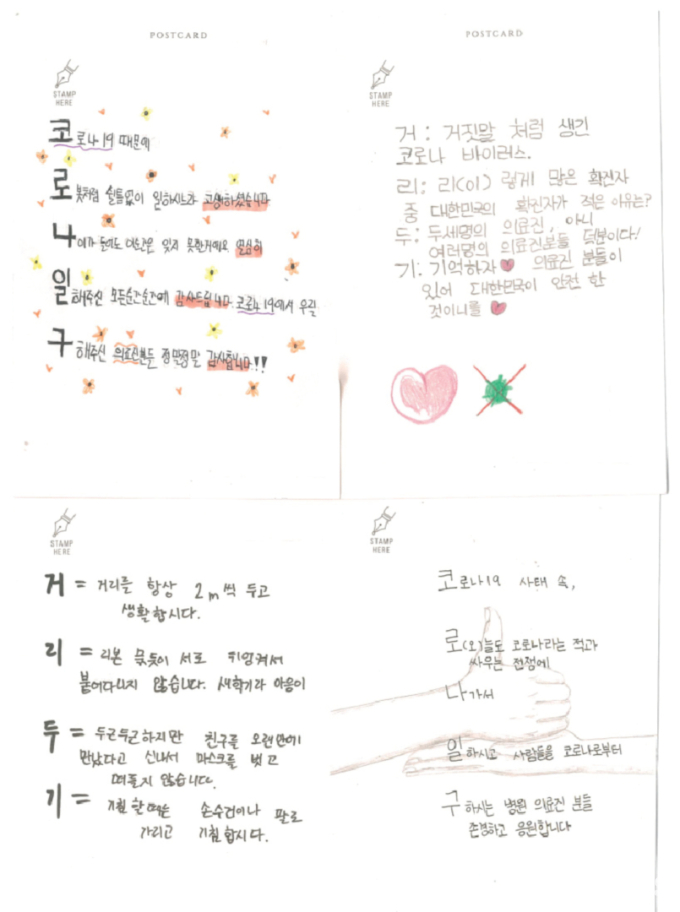 POSTCARD
STAMP
HERE
코로나19 때문에
로봇처럼 쉴틈없이 일하시느라 고생하셨습니다
일해주신 모든순간순간에 감사드립니다. 코로나19에서 우릴
구해주신 의료진분들 정말정말 감사합니다!!
POSTCARD
STAMP
HERE
거: 거짓말 처럼 생긴
코로나 바이러스.
리: 리(이) 렇게 많은 확진자
중 대한민국의 확진자가 적은 이유는?
두: 두세명의 의료진, 아니
여러명의 의료진분들 덕분이다!
기: 기억하자 의료진 분들이
있어 대한민국이 안전 한
것이니를
STAMP
HERE
거 = 거리를 항상 2m씩 두고
생활합시다.
리 = 리본 묶듯이 서로 뒤엉켜서
붙어다니지 않습니다. 새학기라 마음이
두 = 두근두근하지만 친구를 오랜만에
만났다고 신나서 마스크를 벗고
떠들지 않습니다.
기 = 기침할때는 손수건이나 팔로
가리고 기침합시다.
STAMP
HERE
코로나19 사태 속,
로(오)늘도 코로나라는 적과
싸우는 전쟁에
나가서
일하시고 사람들을 코로나로부터
구하시는 병원 의료진 분들
존경하고 응원합니다